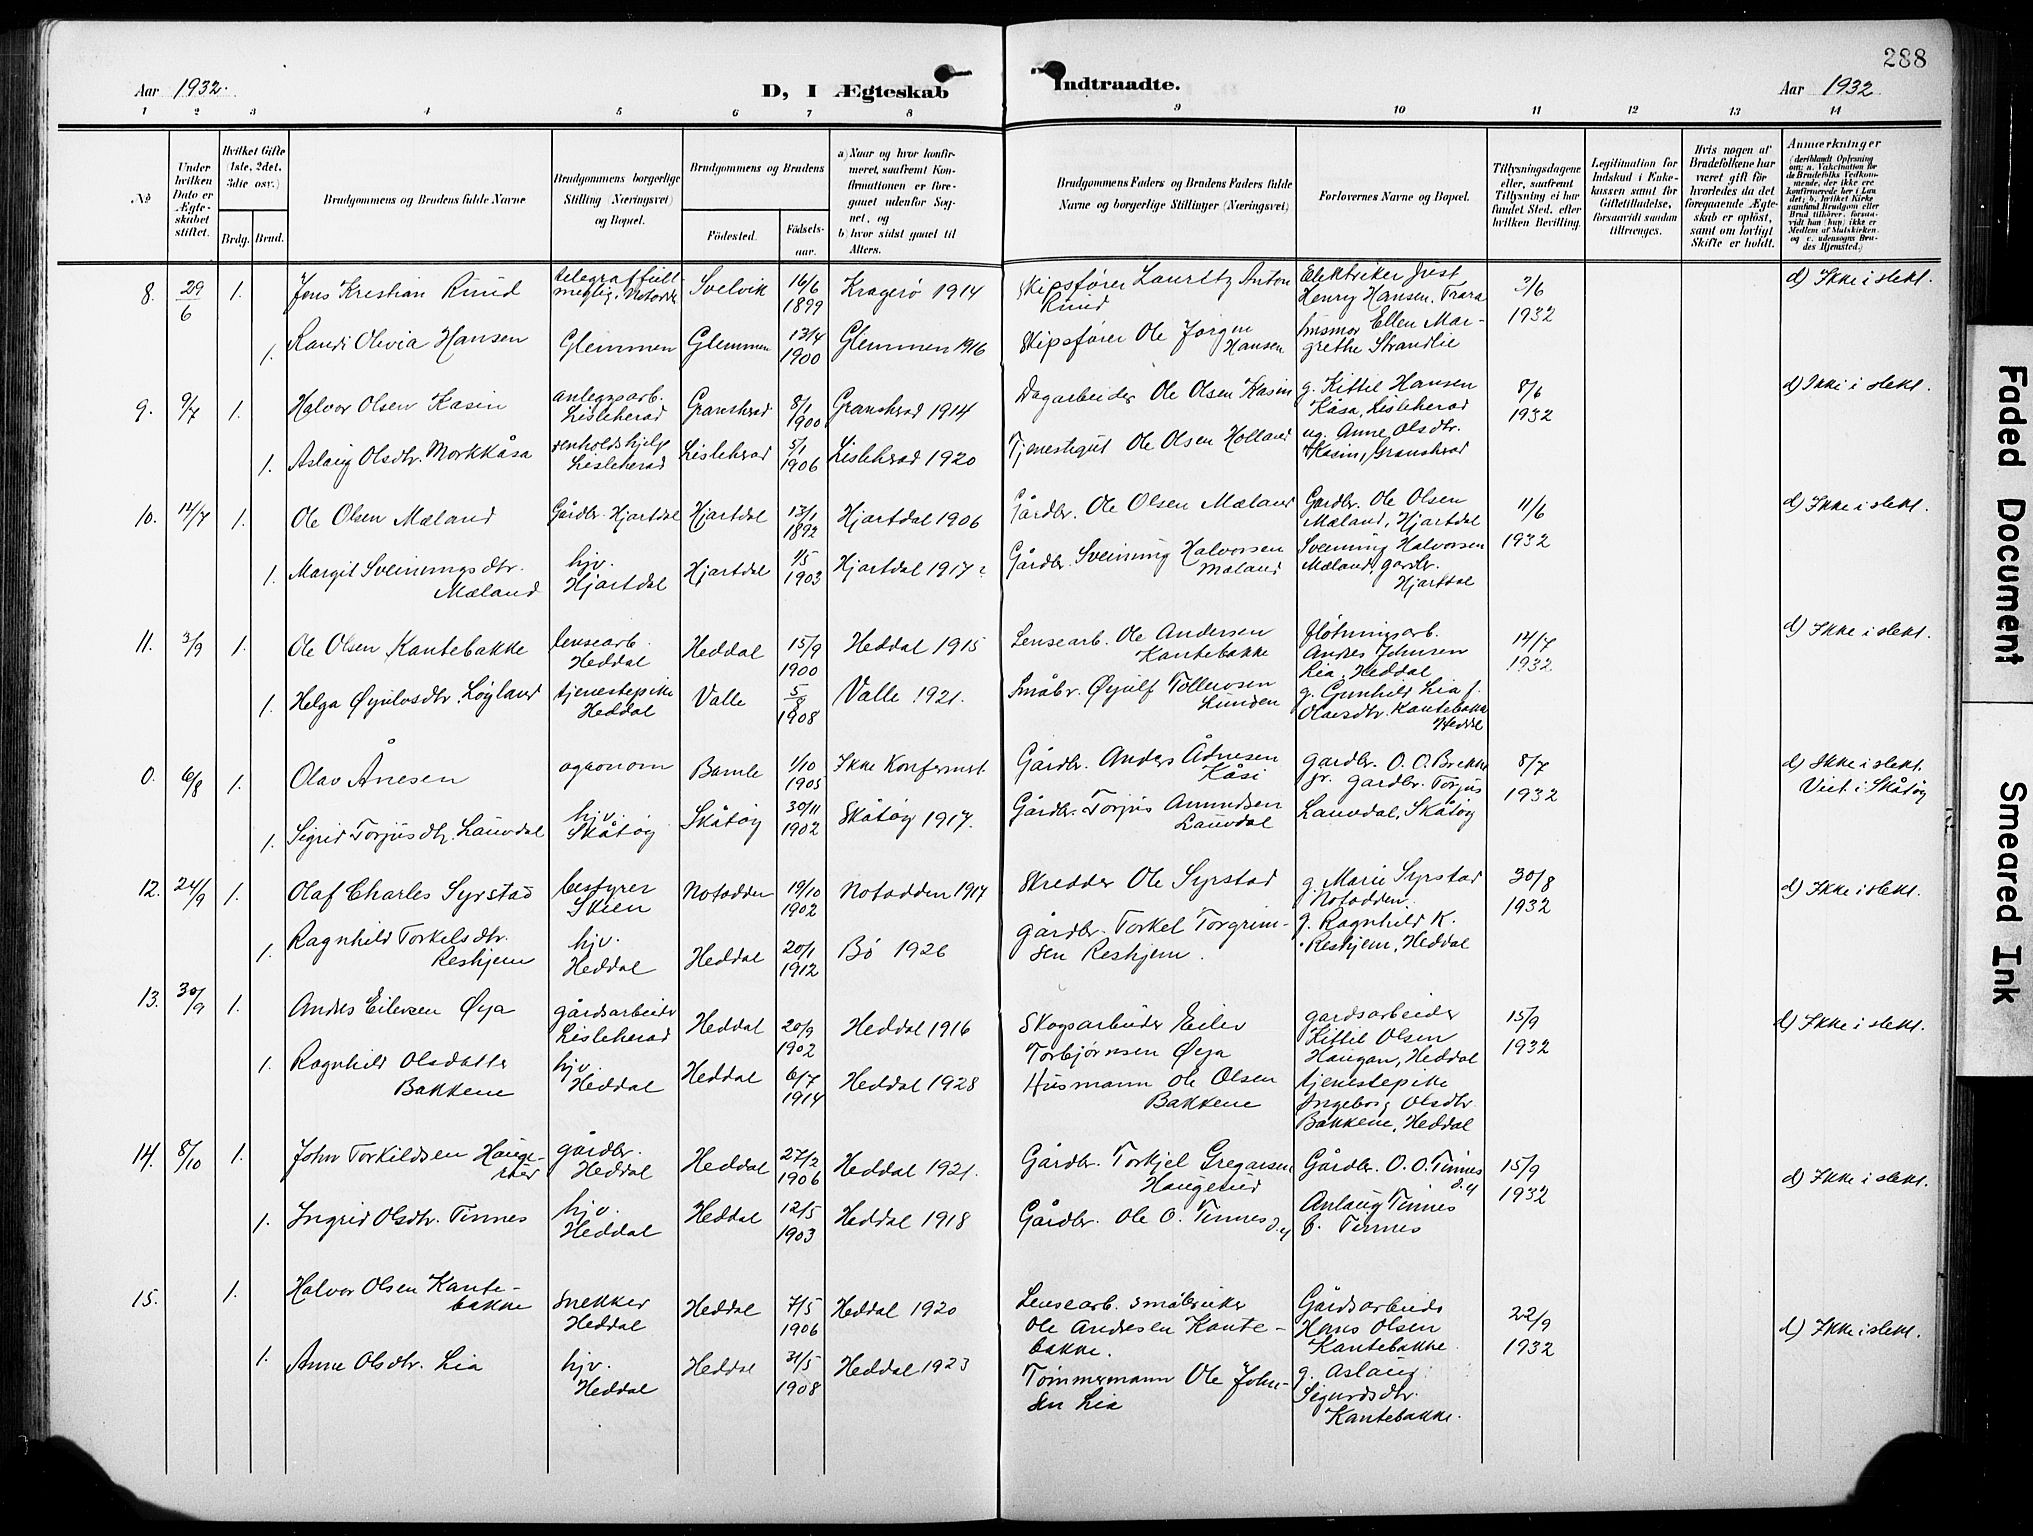 288
Aar 1932.
D, I Ægteskab Indtraadte.
Aar 1932
1 2 3 4 5 6 7 8 9 10 11 12 13 14
No
Under hvilken Dato er Ægteskabet stiftet.
Hvilket Gifte (1ste, 2det, 3die osv.)
Brdg. Brud.
Brudgommens og Brudens fulde Navne
Brudgommens borgerlige Stilling (Næringsvei) og Bopæl.
Brudgommens og Brudens
Fødested. Fødselsaar.
a) Naar og hvor konfirmeret, saafremt Konfirmationen er foregaaet udenfor Sognet, og
b) hvor sidst gaaet til Alters.
Brudgommens Faders og Brudens Faders fulde Navne og borgerlige Stillinger (Næringsvei)
Forlovernes Navne og Bopæl.
Tillysningsdagene eller, saafremt Tillysning ei har fundet Sted, efter hvilken Bevilling.
Legitimation for Indskud i Enkekassen samt for Giftetilladelse, forsaavidt saadan tiltrænges.
Hvis nogen af Brudefolkene har været gift før hvorledes da det foregaaende Ægteskab er opløst, samt om lovligt Skifte er holdt.
Anmærkninger
8. 29/6 1. Jens Kristian Ruud
Svelvik 16/6 1899 Kragerø 1914
Skipsfører Lauritz Anton Ruud
Elektriker Just Henry Hansen, Trara
3/6 1932
d) Ikke i slekt.
1. Randi Olivia Hansen
Glemmen Glemmen 13/4 1900 Glemmen 1916
Skipsfører Ole Jørgen Hansen
husmor Ellen Margrethe Strandlie
9. 9/7 1. Halvor Olsen Kasin
anleggsarb. Lisleherad
Gransherad 8/1 1900 Gransherad 1914
Dagarbeider Ole Olsen Kasin
g. Kittil Hansen Kåsa, Lisleherad
8/6 1932
d) Ikke i slekt.
1. Aslaug Olsdtr. Morkkåsa
renholdshjelp Lisleherad
Lisleherad 5/1 1906 Lisleherad 1920
Tjenestegut Ole Olsen Holland
ug. Anne Olsdtr. Kasin, Gransherad
10. 14/7 1. Ole Olsen Mæland
Gårdbr. Hjartdal Hjartdal 13/1 1892 Hjartdal 1906
Gårdbr. Ole Olsen Mæland
Gardbr. Ole Olsen Mæland, Hjartdal
11/6 1932
d) Ikke i slekt.
1. Margit Sveinungsdtr. Mæland
hjv. Hjartdal
Hjartdal 1/5 1903 Hjartdal 1917
Gårdbr. Sveinung Halvorsen Mæland
Sveinung Halvorsen Mæland, gardbr. Hjartdal
11. 3/9 1. Ole Olsen Kantebakke
lensearb. Heddal
Heddal 15/9 1900 Heddal 1915
Lensearb. Ole Andersen Kantebakke
fløtningsarb. Andres Johnsen Lia, Heddal
14/7 1932.
d) Ikke i slekt.
1. Helga Øyulvsdtr. Løyland
tjenestepike Heddal
Valle 5/8 1908 Valle 1921.
Småbr. Øyulf Tollevsen Lunden
g. Gunhild Lia f. Olavsdtr. Kantebakke Heddal
0. 6/8 1. Olav Ånesen
agronom Bamle 1/10 1905 Ikke Konfermert.
Gårdbr. Anders Ådnesen Kåsi
gardbr. O. O. Brekke
jr. gardbr. Torjus
8/7 1932
d) Ikke i slekt.
Viet i Skåtøy
1. Sigrid Torjusdtr. Lauvdal
hjv. Skåtøy
Skåtøy 30/11 1902 Skåtøy 1917.
Gårdbr. Torjus Amundsen Lauvdal
Lauvdal, Skåtøy
12. 24/9 1. Olaf Charles Syrstad
bestyrer Skien
Notodden 19/10 1902 Notodden 1917
Skredder Ole Syrstad
g. Marie Syrstad Notodden.
30/8 1932
d) Ikke i slekt.
1. Ragnhild Torkelsdtr. Reshjem
hjv. Heddal
Heddal 20/1 1912 Bø 1926
gårdbr. Torkel Torgrimsen Reshjem.
g. Ragnhild K. Reshjem, Heddal
13. 30/9 1. Andres Eilevsen Øya
gårdsarbeider Lisleherad
Heddal 20/9 1902 Heddal 1916
Skogsarbeider Eilev Torbjørnsen Øya
gardsarbeider Kittil Olsen Haugan, Heddal
15/9 1932
d) Ikke i slekt.
1. Ragnhild Olsdatter Bakkene
hjv. Heddal
Heddal 6/7 1914 Heddal 1928
Husmann Ole Olsen Bakkene
tjenestepike Ingeborg Olsdtr. Bakkene, Heddal
14. 8/10 1. John Torkildsen
gårdbr. Heddal
Heddal 27/2 1906 Heddal 1921.
Gårdbr. Torkjel Gregarsen Haugerud
Gårdbr. O. O. Tinnes d.y.
15/9 1932
d) Ikke i slekt.
1. Ingrid Olsdtr. Tinnes
hjv. Heddal
Heddal 12/5 1903 Heddal 1918
Gårdbr. Ole O. Tinnes d.y
Anlaug Tinnes
f. Tinnes
15. 1. Halvor Olsen Kantebakke
snekker Heddal
Heddal 7/5 1906 Heddal 1920
Lensearb. småbruker Ole Andresen Kantebakke.
Gårdsarbeider Hans Olsen Kantebakke.
22/9 1932
d) Ikke i slekt.
1. Anne Olsdtr. Lia
hjv. Heddal
Heddal 31/5 1908 Heddal 1923
Tømmermann Ole Johnsen Lia
g. Aslaug Sigurdsdtr. Kantebakke.
Faded Document
Smeared Ink